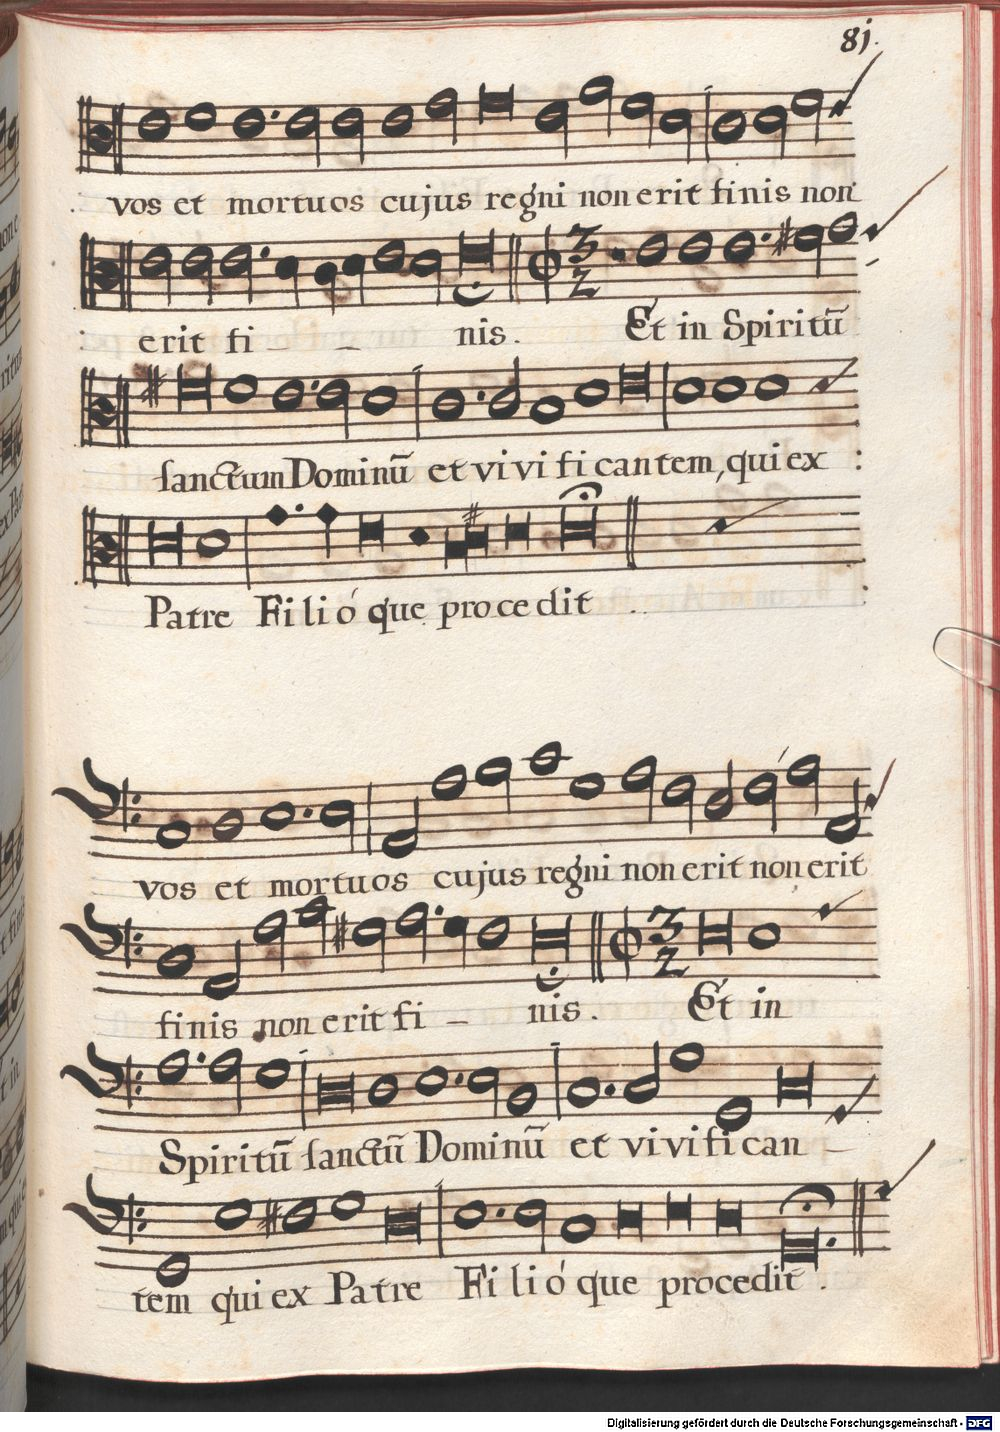 81.
vos et mortuos cujus regni non erit finis non
erit fi - - nis. Et in Spiritū
sanctum Dominū et vivificantem, qui ex :
Patre Filióque procedit .
vos et mortuos cujus regni non erit non erit
finis non erit fi - nis. Et in
Spiritū sanctū Dominū et vivifican -
tem qui ex Patre Filióque procedit .
Digitalisierung gefördert durch die Deutsche Forschungsgemeinschaft - DFG